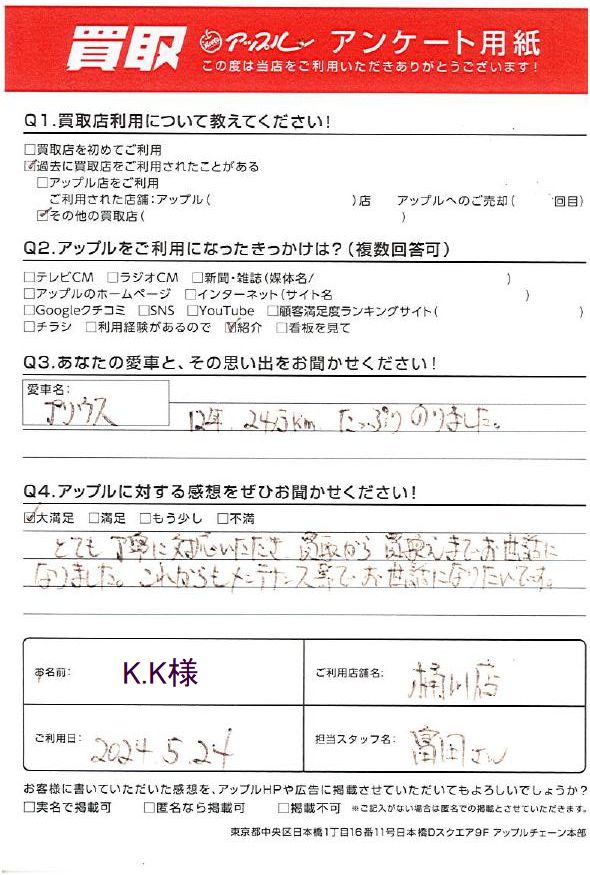 買取 アップル アンケート用紙
この度は当店をご利用いただきありがとうございます!
Q1.買取店利用について教えてください!
□買取店を初めてご利用
☑過去に買取店をご利用されたことがある
□アップル店をご利用
ご利用された店舗:アップル( )店 アップルへのご売却( 回目)
☑その他の買取店( )
Q2.アップルをご利用になったきっかけは?(複数回答可)
□テレビCM □ラジオCM □新聞・雑誌(媒体名/ )
□アップルのホームページ □インターネット(サイト名 )
□Googleクチコミ □SNS □YouTube □顧客満足度ランキングサイト( )
□チラシ □利用経験があるので ☑紹介 □看板を見て
Q3.あなたの愛車と、その思い出をお聞かせください!
愛車名:
プリウス
12年、24万km たっぷりのりました。
Q4.アップルに対する感想をぜひお聞かせください!
☑大満足 □満足 □もう少し □不満
とても丁寧に対応いただき 買取から 買換えまでお世話に
なりました。これからもメンテナンス等でお世話になりたいです。
お名前: K.K様 ご利用店舗名: 桶川店
ご利用日: 2024.5.24 担当スタッフ名: 富田さん
お客様に書いていただいた感想を、アップルHPや広告に掲載させていただいてもよろしいでしょうか?
□実名で掲載可 □匿名なら掲載可 □掲載不可 ※ご記入がない場合は匿名での掲載とさせていただきます。
東京都中央区日本橋1丁目16番11号日本橋Dスクエア9F アップルチェーン本部